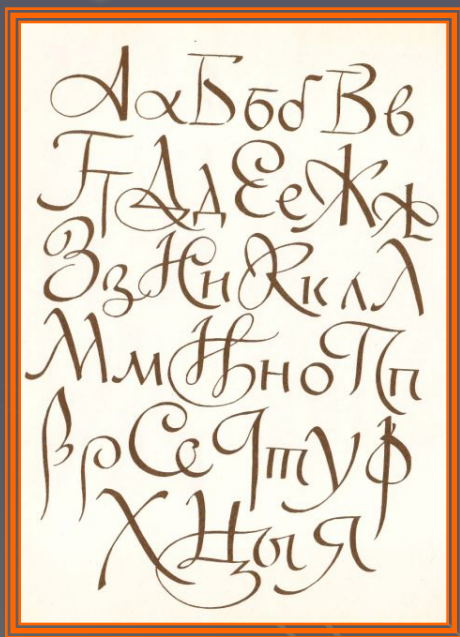 Аа Бб б Вв
Гг Дд Ее Жж
Зз Ии Кк лЛ
Мм Нн о Пп
Рр Сс Т т у ф
Х Ц ы Я